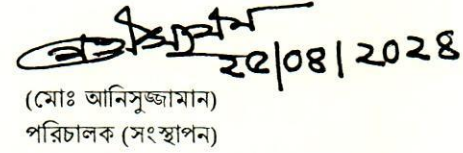 ২৫|০৪|২০২৪
(মোঃ আনিসুজ্জামান)
পরিচালক (সংস্থাপন)